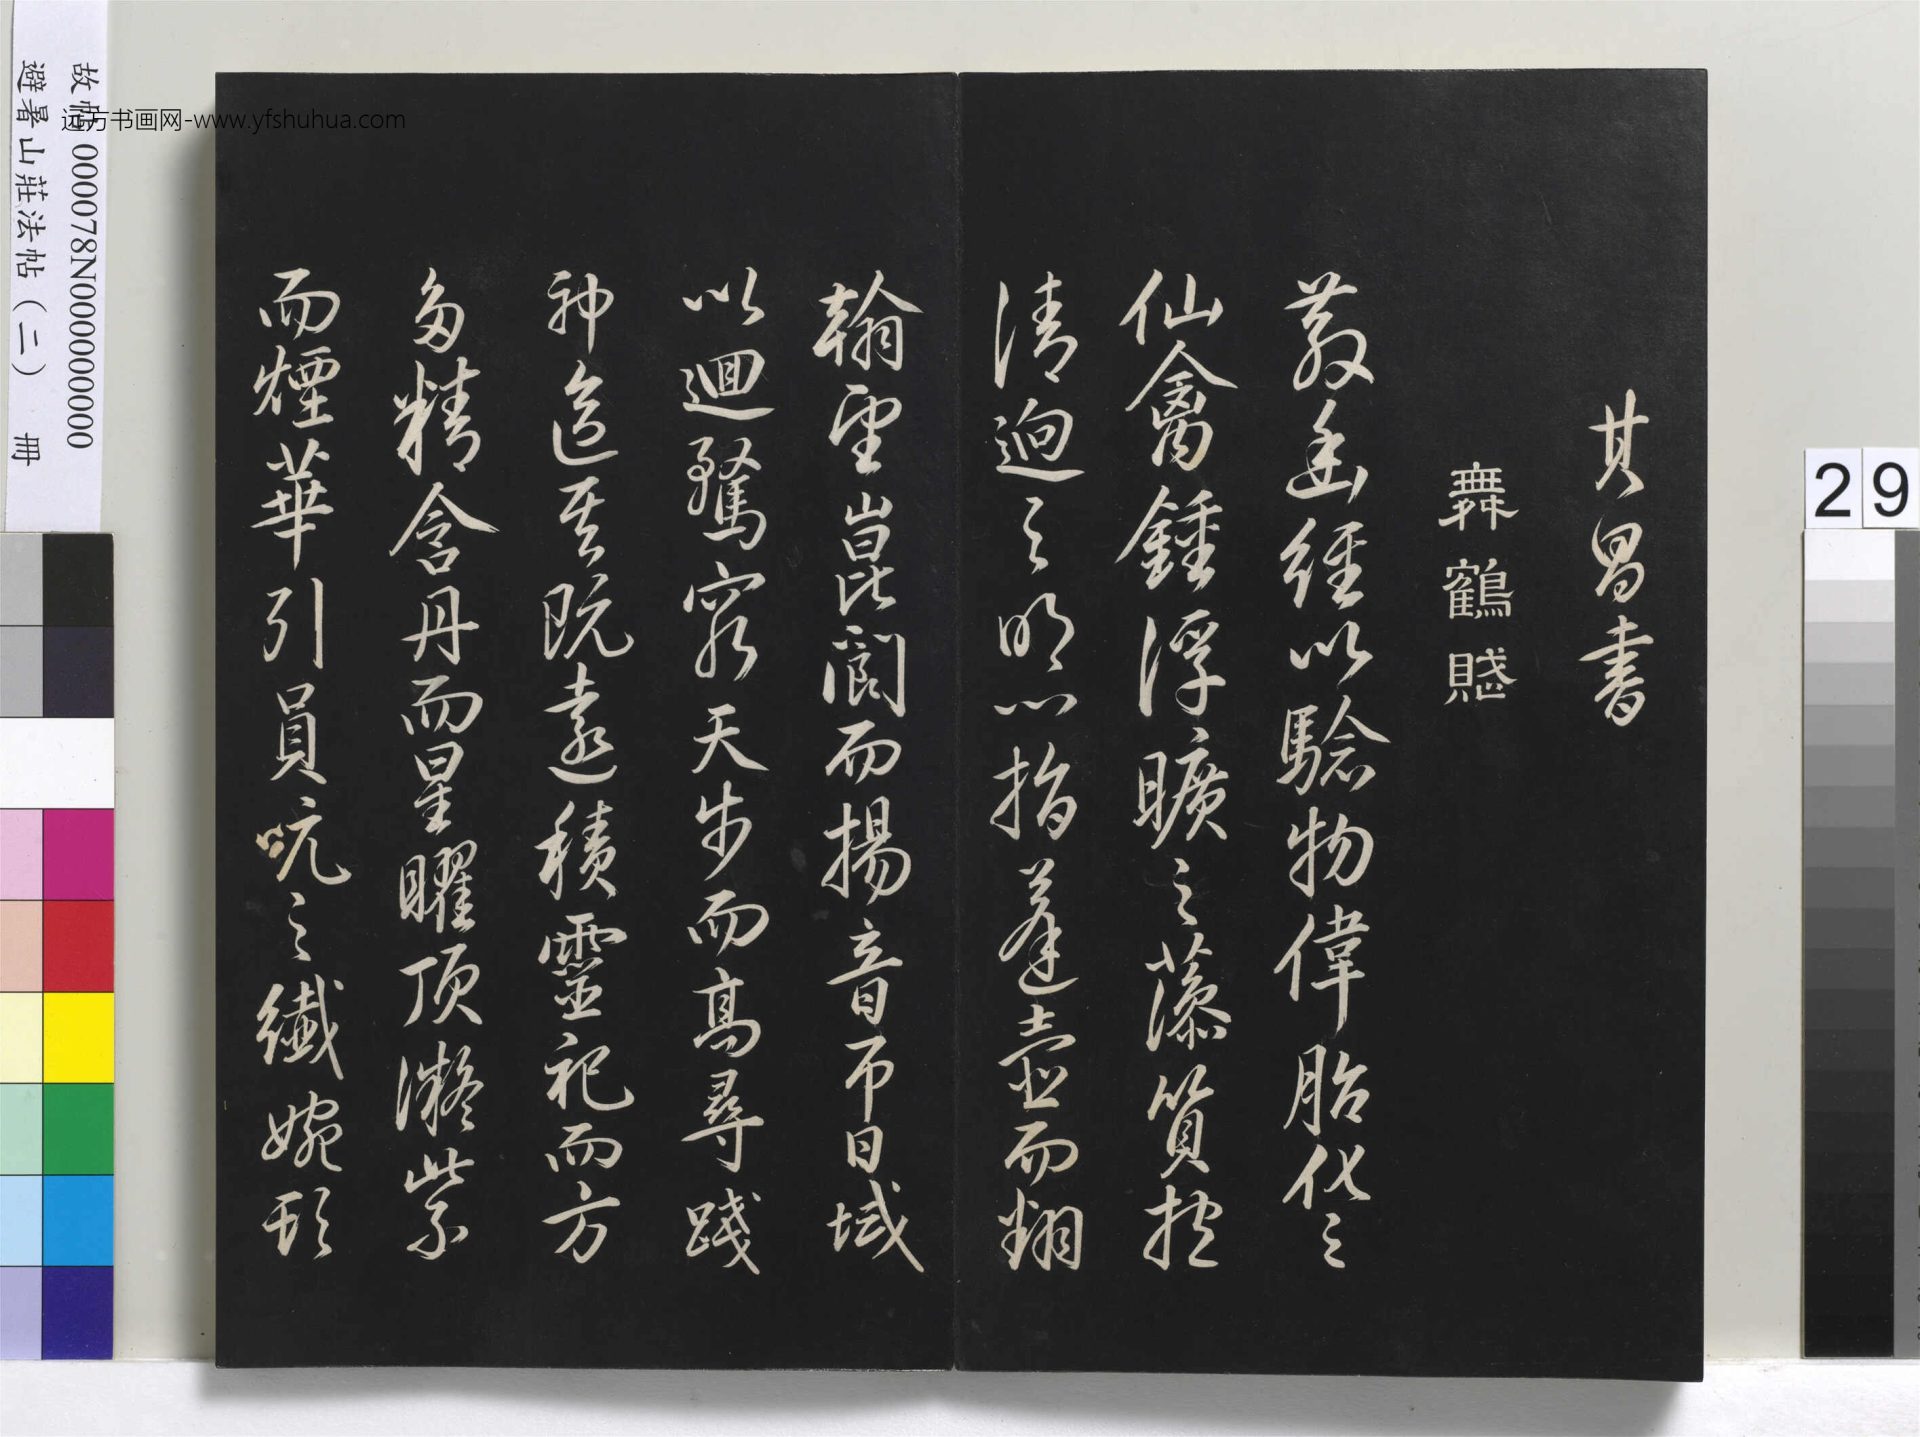 其昌書
舞鶴賦
散幽經以驗物偉胎化之
仙禽鍾浮曠之藻質抱
清迥之明心指蓬壺而翻
翰望崑閬而揚音帀日域
以迴騖窮天步而高尋踐
神區其既遠積靈祀而方
多精含丹而星曜頂凝紫
而煙華引員吭之纖婉頓
故帖000078N000000000
避暑山莊法帖（二） 冊
远方书画网-www.yfshuhua.com
29